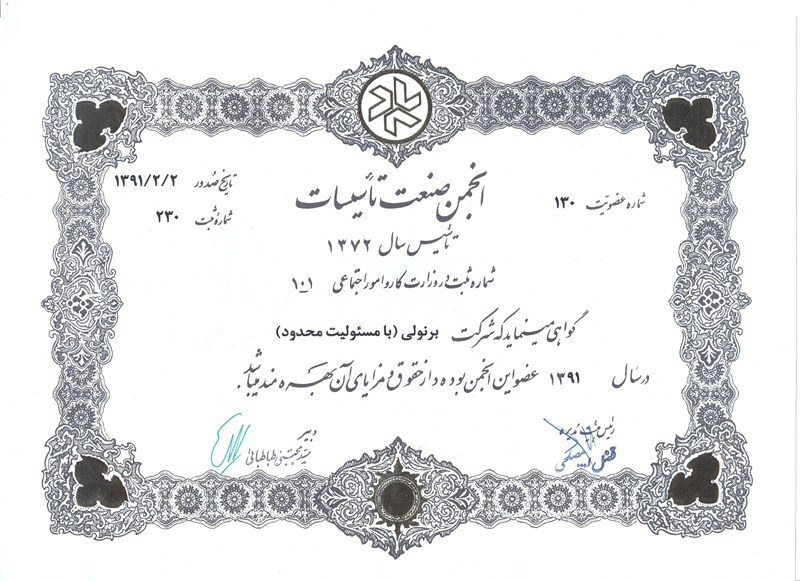 انجمن صنعت تأسیسات
شماره عضویت ۱۳۰
تاریخ صدور ۱۳۹۱/۲/۲
شماره ثبت ۲۳۰
تأسیس سال ۱۳۷۲
شماره ثبت در وزارت کار و امور اجتماعی ۱-۱۰
گواهی مینماید که شرکت برنولی (با مسئولیت محدود)
در سال ۱۳۹۱ عضو این انجمن بوده و از حقوق و مزایای آن بهره مند میباشد.
رئیس هیئت مدیره
دبیر
سید مجتبی طباطبائی